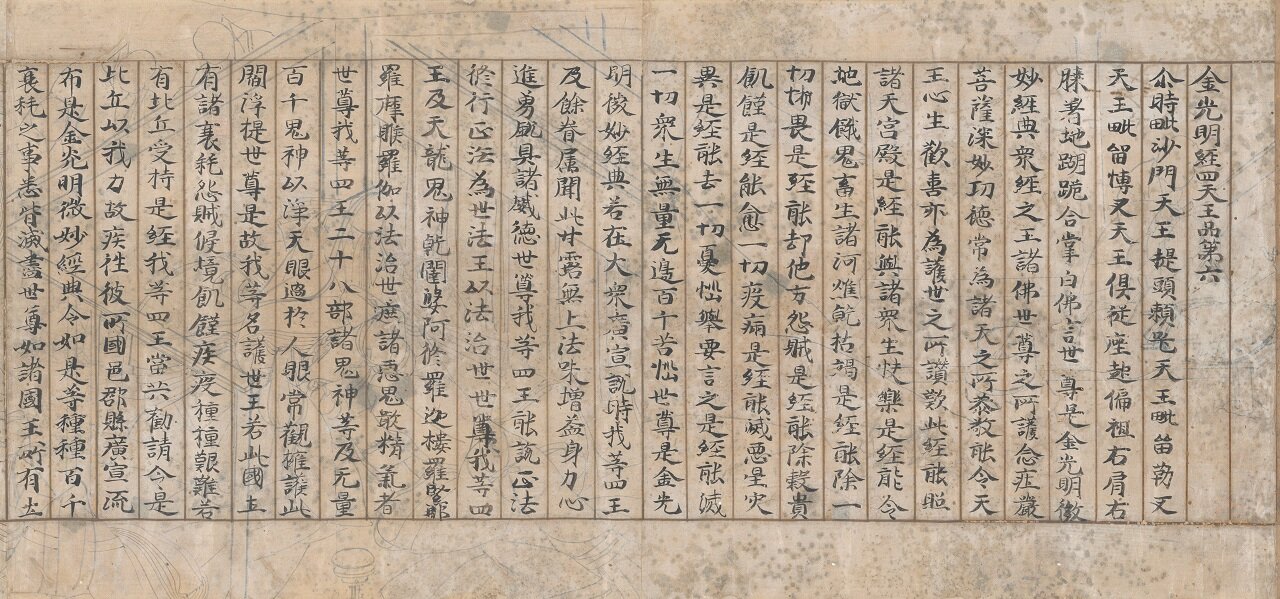 金光明經四天王品第六
尒時毗沙門天王提頭頼吒天王毗留勒叉
天王毗留博叉天王俱從座起偏袒右肩右
膝著地蹲跪合掌白佛言世尊是金光明微
妙經典衆經之王諸佛世尊之所護念莊嚴
菩薩深妙功德常為諸天之所恭敬能令天
王心生歡喜亦為護世之所讚歎此經能照
諸天宮殿是經能與諸衆生快樂是經能令
地獄餓鬼畜生諸河燋乾枯竭是經能除一
切怖畏是經能却他方怨賊是經能除穀貴
飢饉是經能愈一切疫病是經能滅惡星灾
異是經能去一切憂惱舉要言之是經能滅
一切衆生無量无邊百千苦惱世尊是金光
明微妙經典若在大衆廣宣說時我等四王
及餘眷屬聞此甘露無上法味增益身力心
進勇銳具諸威德世尊我等四王能說正法
俢行正法為世法王以法治世世尊我等四
王及天龍鬼神乾闥婆阿俢羅迦樓羅緊那
羅摩睺羅伽以法治世遮諸惡鬼噉精氣者
世尊我等四王二十八部諸鬼神等及无量
百千鬼神以淨天眼過於人眼常觀擁護此
閻浮提世尊是故我等名護世王若此國土
有諸衰耗怨賊侵境飢饉疾疫種種艱難若
有比丘受持是經我等四王當共勸請令是
比丘以我力故疾往彼所國邑郡縣廣宣流
布是金光明微妙經典令如是等種種百千
衰耗之事悉皆滅盡世尊如諸國王所有土